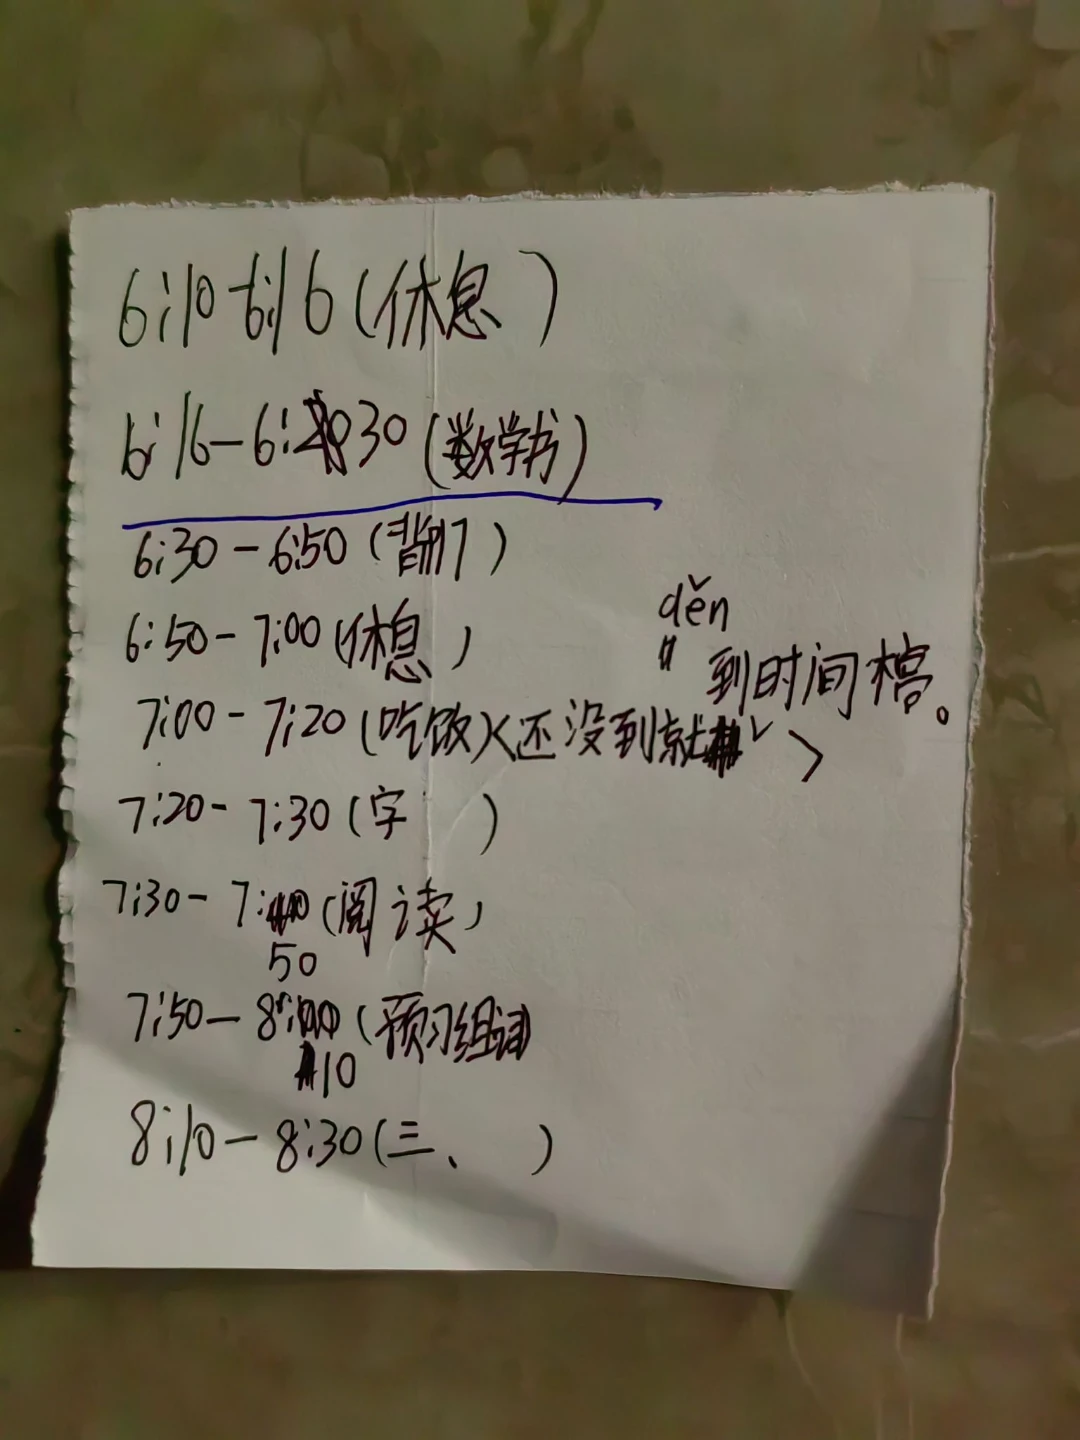 6:10-6:16(休息)
6:16-6:30(数学书)
6:30-6:50(背
6:50-7:00(休息)
děn
到时间搞。
7:00-7:20(吃饭)(还没到就
7:20-7:30(字 )
7:30-7:50(阅读)
7:50-8:10(预习组词)
8:10-8:30(三、 )